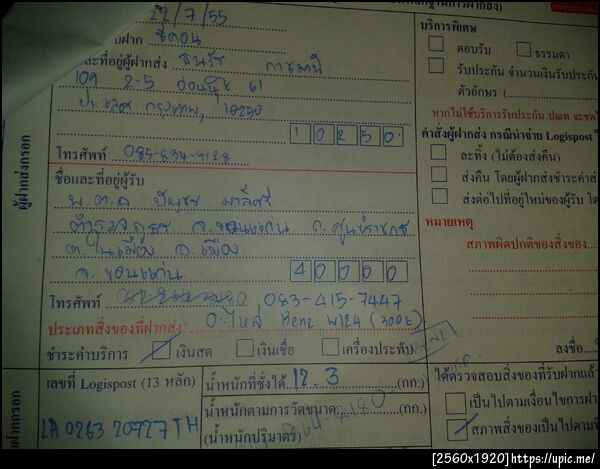 22/7/55
ฝาก
และที่อยู่ผู้ฝากส่ง
109 2-5 อ่อนนุช 61
ประเวศ กรุงเทพฯ 10250
10250
โทรศัพท์ 085-834-9128
ชื่อและที่อยู่ผู้รับ
พ.ต.ต
ตำรวจภูธร จ.ขอนแก่น ถ.ศูนย์ราชการ
ต.ในเมือง อ.เมือง
จ.ขอนแก่น 40000
โทรศัพท์ 083-415-7447
ประเภทสิ่งของที่ฝากส่ง อ.ไหล่ Benz W124 (300E)
ชำระค่าบริการ เงินสด เงินเชื่อ เครื่องประทับ
เลขที่ Logispost (13 หลัก) น้ำหนักที่ชั่งได้ 12.3 (กก.)
น้ำหนักตามการวัดขนาด (กก.)
LA 0263 20727 TH (น้ำหนักปริมาตร)
ผู้ฝากส่งกรอก
บริการพิเศษ
ตอบรับ ธรรมดา
รับประกัน จำนวนเงินรับประกัน
ตัวอักษร (
หากไม่ใช้บริการรับประกัน ปณท จะชด
คำสั่งผู้ฝากส่ง กรณีนำจ่าย Logispost
ละทิ้ง (ไม่ต้องส่งคืน)
ส่งคืน โดยผู้ฝากส่งชำระค่าส
ส่งต่อไปที่อยู่ใหม่ของผู้รับ
หมายเหตุ
สภาพผิดปกติของสิ่งของ
ลงชื่อ
ได้ตรวจสอบสิ่งของที่รับฝากแล้ว
เป็นไปตามเงื่อนไขการฝา
สภาพสิ่งของเป็นไปตาม
[2560x1920]https://upic.me/